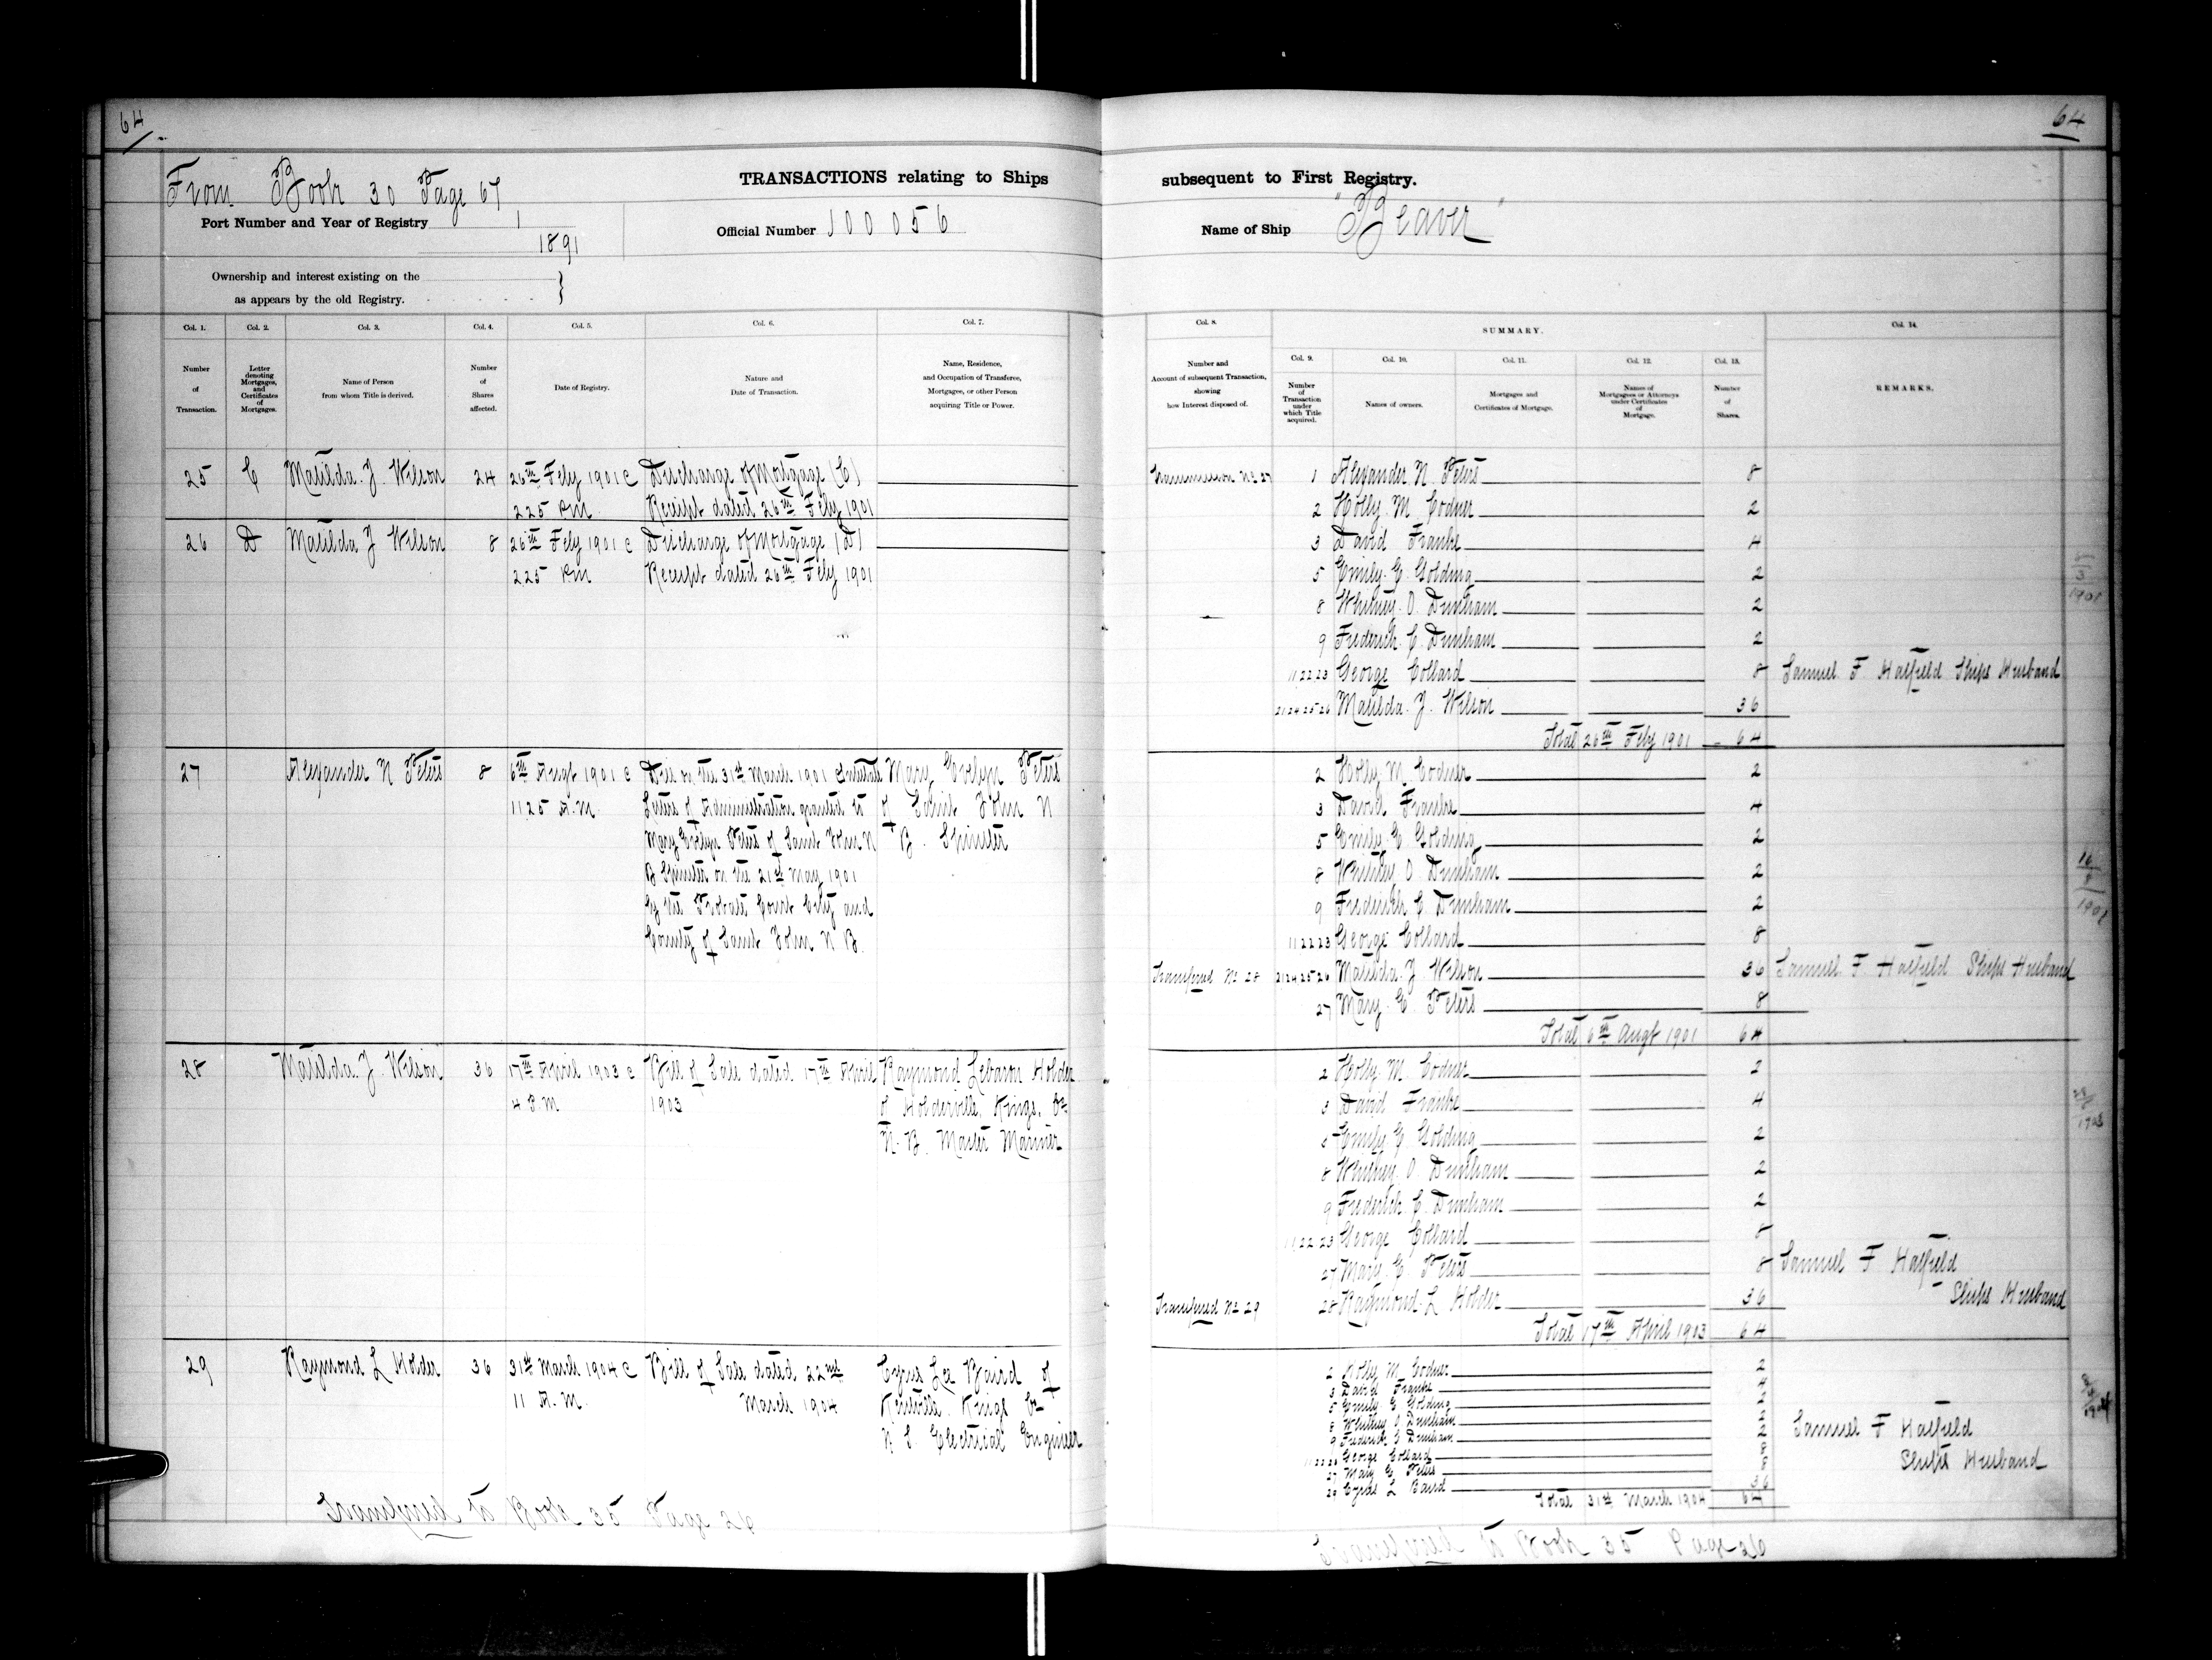 64
64
From Book 30 Page 67
TRANSACTIONS relating to Ships
subsequent to First Registry.
Port Number and Year of Registry 1
1891
Official Number 100056
Name of Ship "Beaver"
Ownership and interest existing on the
as appears by the old Registry.
Col. 1. Col. 2. Col. 3. Col. 4. Col. 5. Col. 6. Col. 7.
Number of Transaction.
Letter denoting Mortgages, and Certificates of Mortgages.
Name of Person from whom Title is derived.
Number of Shares affected.
Date of Registry.
Nature and Date of Transaction.
Name, Residence, and Occupation of Transferee, Mortgagee, or other Person acquiring Title or Power.
Col. 8. SUMMARY. Col. 14.
Col. 9. Col. 10. Col. 11. Col. 12. Col. 13.
Number and Account of subsequent Transaction, showing how Interest disposed of.
Number of Transaction under which Title acquired.
Names of owners.
Mortgages and Certificates of Mortgage.
Names of Mortgagees or Attorneys under Certificates of Mortgage.
Number of Shares.
REMARKS.
25 C Matilda J. Wilson 24 26th Feby 1901 @ Discharge of Mortgage (C)
2 25 P.M. Receipt dated 26th Feby 1901
26 D Matilda J Wilson 8 26th Feby 1901 @ Discharge of Mortgage (D)
2 25 P.M. Receipt dated 26th Feby 1901
27 Alexander N Peters 8 6th Augt 1901 @ Died on the 31st March 1901 Intestate Mary Evelyn Peters
11 25 A.M. Letters of Administration granted to of Saint John N
Mary Evelyn Peters of Saint John N B. Spinster
B Spinster on the 21st May 1901
by the Probate Court City and
County of Saint John N B.
28 Matilda J. Wilson 36 17th April 1903 @ Bill of Sale dated 17th April Raymond Lebaron Holder
4 P.M 1903 of Holderville, Kings, Co
N. B. Master Mariner
29 Raymond L Holder 36 31st March 1904 @ Bill of Sale dated 22nd Cyrus Lee Baird of
11 A.M. March 1904 Kentville Kings Co
N S. Electrical Engineer
Transferred to Book 35 Page 26
Transmission No 27 1 Alexander N. Peters 8
2 Holly M. Codner 2
3 David Franke 4
5 Emily E Golding 2
8 Whitney O. Dunham 2
9 Frederick C. Dunham 2
11 22 23 George Collard 8 Samuel F Hatfield Ships Husband
21 24 25 26 Matilda J. Wilson 36
Total 26th Feby 1901 64
2 Holly M. Codner 2
3 David Franke 4
5 Emily E Golding 2
8 Whitney O. Dunham 2
9 Frederick C. Dunham 2
11 22 23 George Collard 8
Transferred No 28 21 24 25 26 Matilda J. Wilson 36 Samuel F. Hatfield Ships Husband
27 Mary E Peters 8
Total 6th Augt 1901 64
2 Holly M. Codner 2
3 David Franke 4
5 Emily E Golding 2
8 Whitney O. Dunham 2
9 Frederick C. Dunham 2
11 22 23 George Collard 8
27 Mary E. Peters 8 Samuel F Hatfield
Transferred No 29 28 Raymond L Holder 36 Ships Husband
Total 17th April 1903 64
2 Holly M Codner 2
3 David Franke 4
5 Emily E Golding 2
8 Whitney O Dunham 2
9 Frederick C Dunham 2 Samuel F Hatfield
11 22 23 George Collard 8 Ships Husband
27 Mary E Peters 8
29 Cyrus L Baird 36
Total 31st March 1904 64
Transferred to Book 35 Page 26